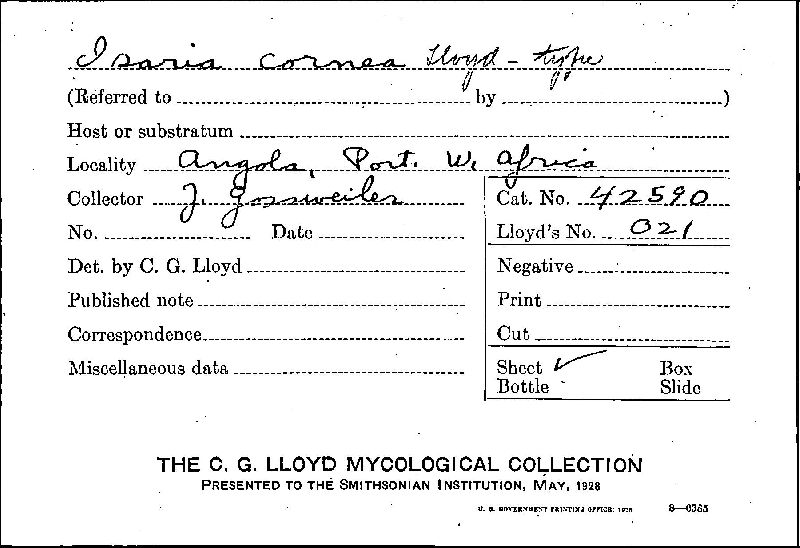 Isaria cornea Lloyd - type
(Referred to by )
Host or substratum
Locality Angola, Port. W. Africa
Collector J. Gossweiler
Cat. No. 42590
No. Date
Lloyd's No. 021
Det. by C. G. Lloyd
Negative
Published note
Print
Correspondence
Cut
Miscellaneous data
Sheet ✓ Box
Bottle Slide
THE C. G. LLOYD MYCOLOGICAL COLLECTION
PRESENTED TO THE SMITHSONIAN INSTITUTION, MAY, 1928
U. S. GOVERNMENT PRINTING OFFICE: 1928